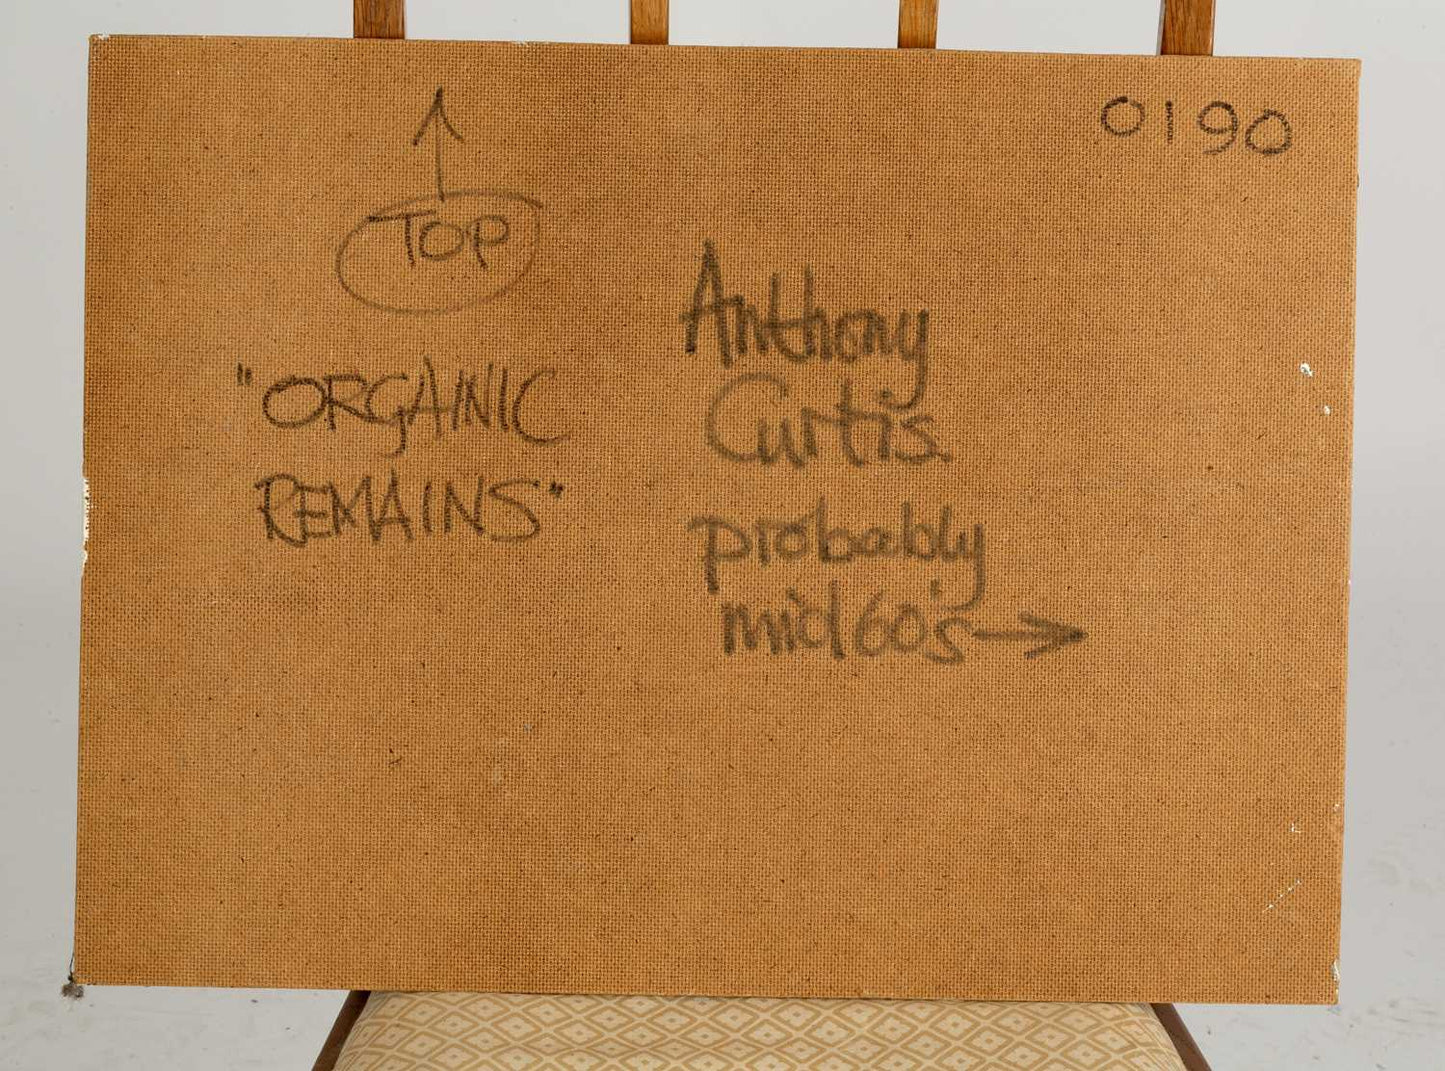 0190
TOP
"ORGAINIC
REMAINS"
Anthony
Curtis.
probably
mid 60's →